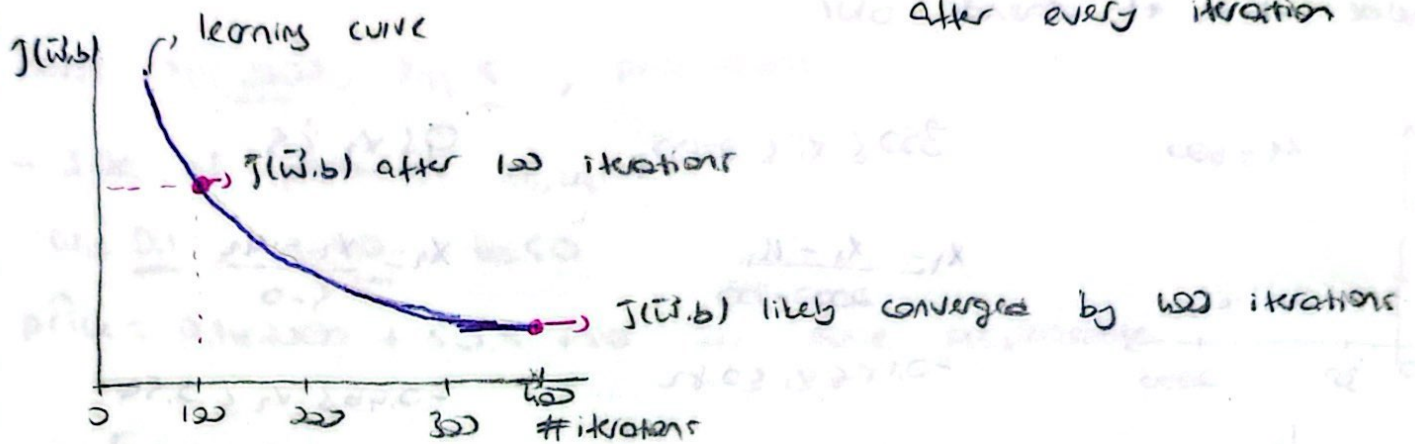 after every iteration
J(w⃗,b)
learning curve
J(w⃗,b) after 100 iterations
J(w⃗,b) likely converged by 400 iterations
0 100 200 300 400
#iterations